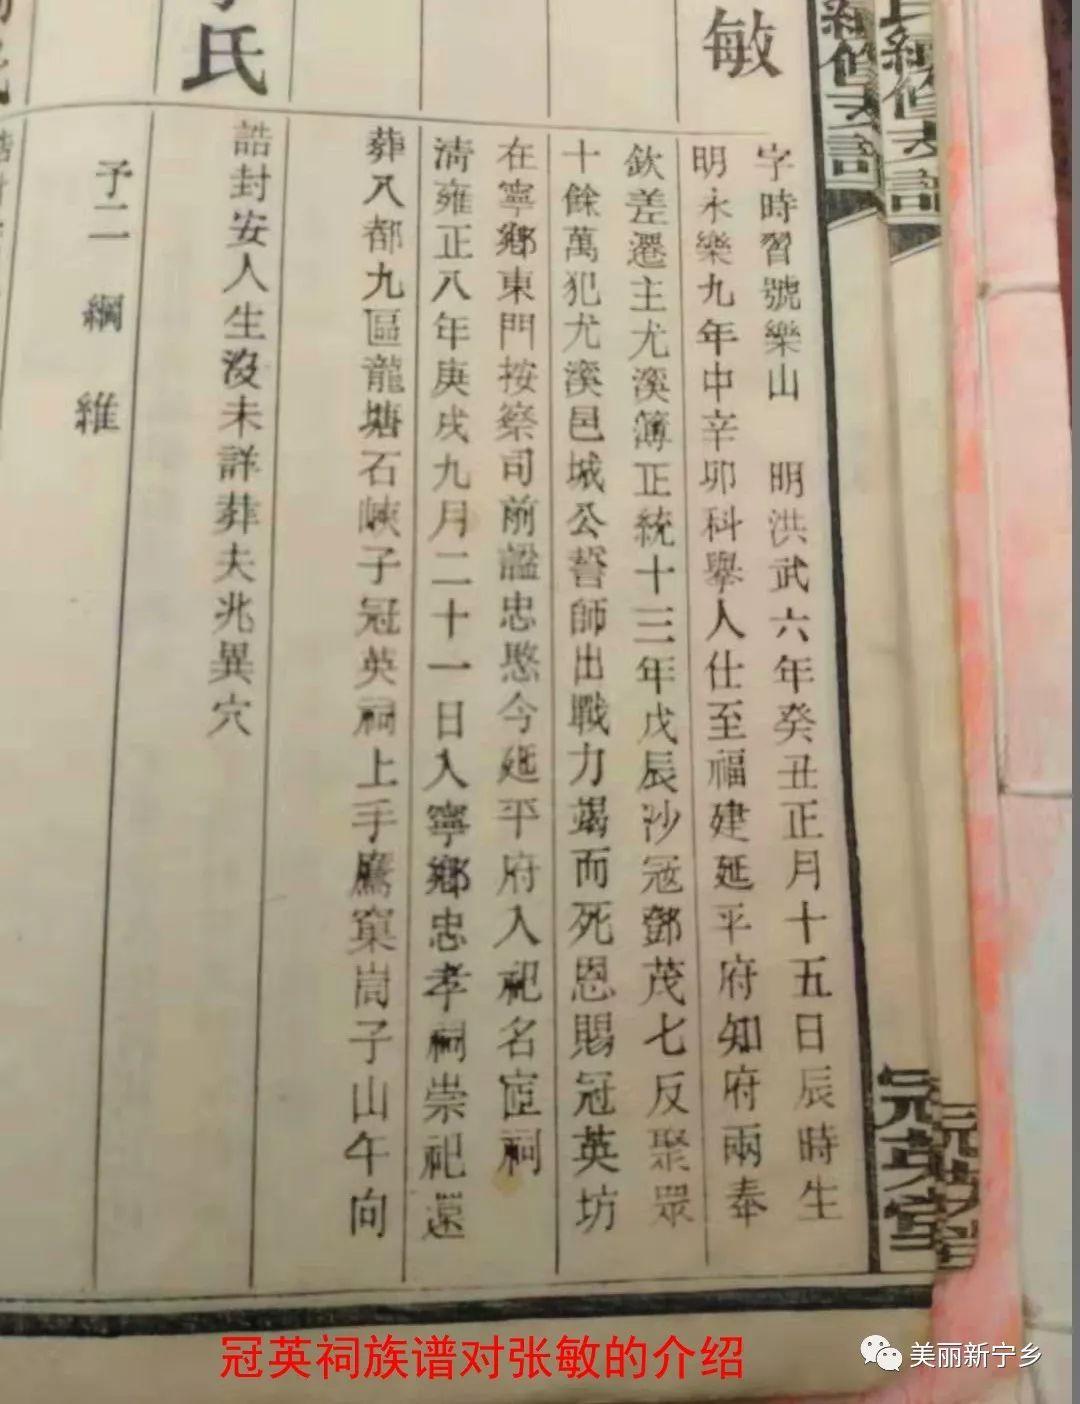 敏
字時習號樂山 明洪武六年癸丑正月十五日辰時生
明永樂九年中辛卯科舉人仕至福建延平府知府兩奉
欽差遷主尤溪簿正統十三年戊辰沙冠鄧茂七反聚眾
十餘萬犯尤溪邑城公誓師出戰力竭而死恩賜冠英坊
在寧鄉東門按察司前謚忠愍今延平府入祀名宦祠
清雍正八年庚戌九月二十一日入寧鄉忠孝祠崇祀還
葬八都九區龍塘石峽子冠英祠上手鷹窠崗子山午向
氏
誥封安人生沒未詳葬夫兆異穴
子二 綱 維
冠英堂
冠英祠族谱对张敏的介绍
美丽新宁乡